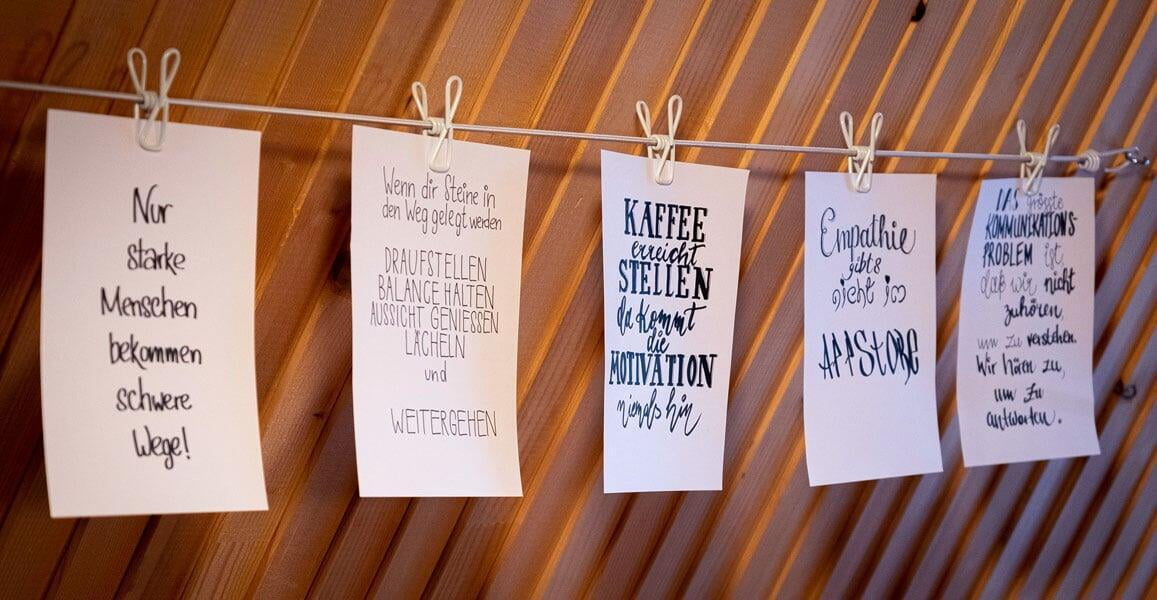 Nur
starke
Menschen
bekommen
schwere
Wege!
Wenn dir Steine in
den Weg gelegt werden
DRAUFSTELLEN
BALANCE HALTEN
AUSSICHT GENIESSEN
LÄCHELN
und
WEITERGEHEN
KAFFEE
erreicht
STELLEN
da kommt
die
MOTIVATION
niemals hin
Empathie
gibt's
nicht im
APPSTORE
DAS größte
KOMMUNIKATIONS-
PROBLEM ist,
daß wir nicht
zuhören,
um zu verstehen.
Wir hören zu,
um zu
antworten.